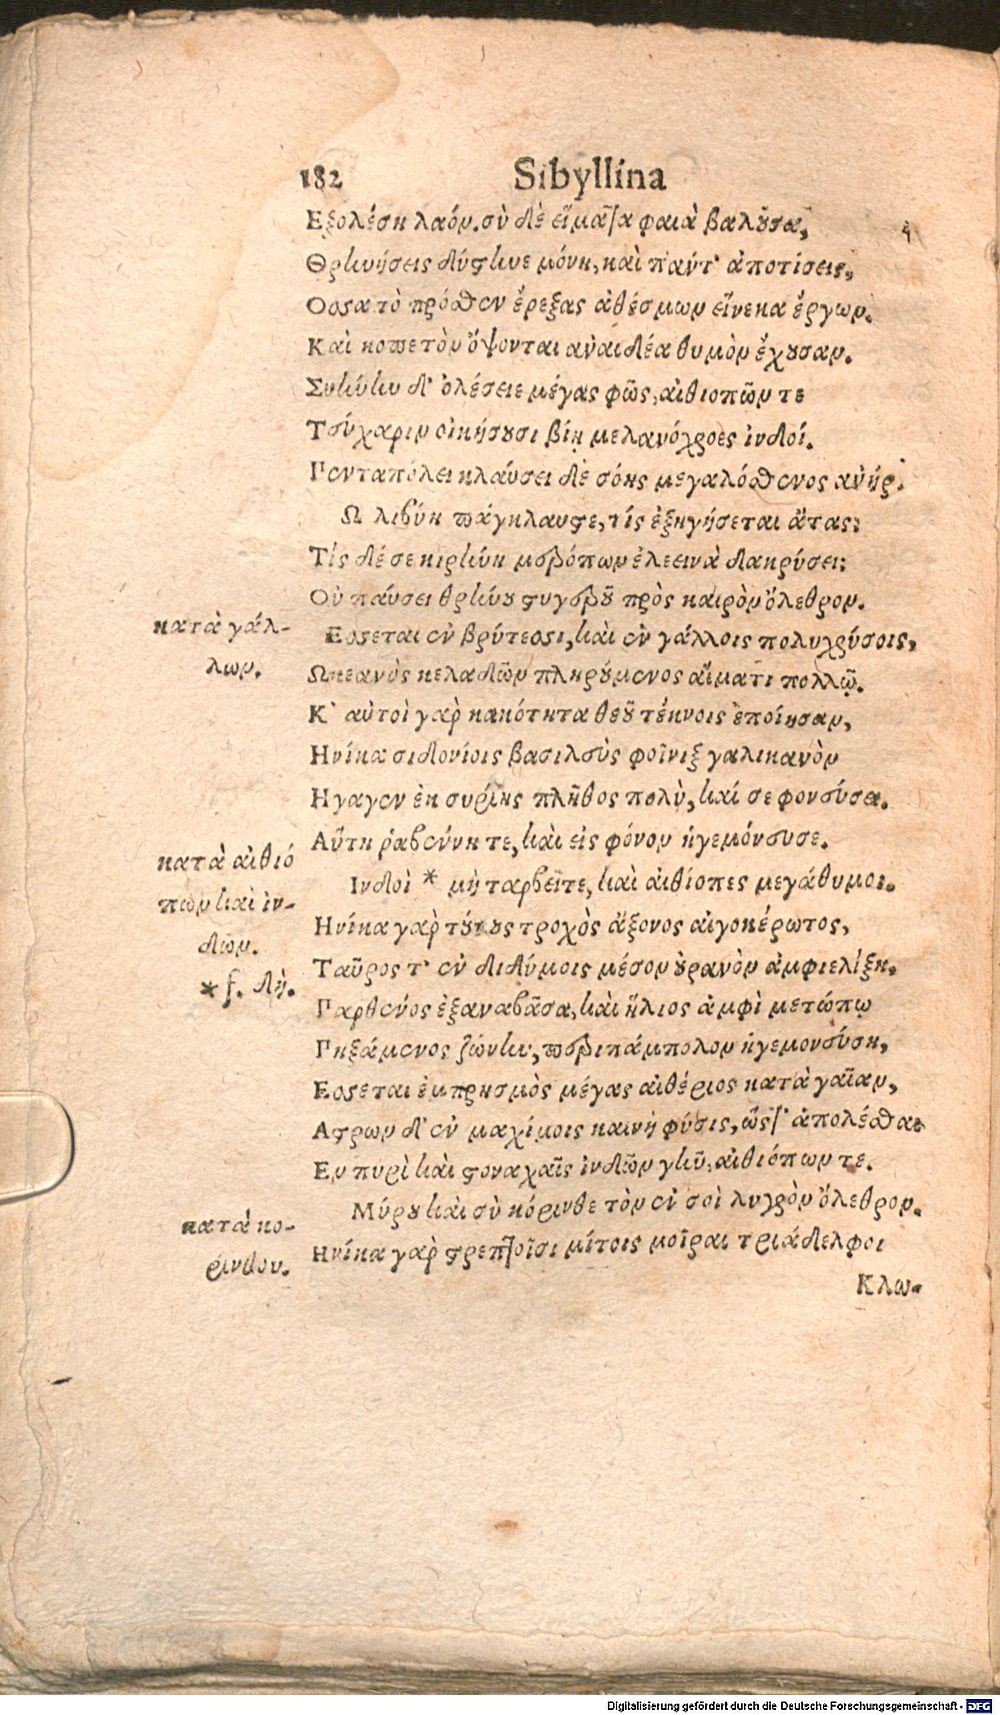 182 Sibyllina
Εξολέση λαόν. σὺ δὲ εἵματα φαιὰ βαλοῦσα,
Θρηνήσεις δύστηνε μόνη, καὶ πάντ' ἀποτίσεις,
Οσσα τὸ πρόσθεν ἔρεξας ἀθέσμων εἵνεκα ἔργων.
Καὶ κοπετὸν ὄψονται ἀναιδέα θυμὸν ἔχουσαν.
Συήνην δ' ὀλέσειε μέγας φῶς, αἰθιοπῶν τε
Τεύχαριν οἰκήσουσι βίῃ μελανόχροες ἰνδοί.
Πενταπόλει κλαύσει δὲ σόης μεγαλόσθενος ἀνήρ.
Ω λιβύη πάγκλαυστε, τίς ἐξηγήσεται ἄτας;
Τίς δέ σε κιρήνη μερόπων ἐλεεινὰ δακρύσει;
Οὐ παύσει θρήνου στυγεροῦ πρὸς καιρὸν ὄλεθρον.
κατὰ γάλ-
λων.
Εσσεται ἐν βρύτεσσι, καὶ ἐν γάλλοις πολυχρύσοις,
Ωκεανὸς κελαδῶν πληρούμενος αἵματι πολλῷ.
Κ' αὐτοὶ γὰρ κακότητα θεοῦ τέκνοις ἐποίησαν,
Ηνίκα σιδονίοις βασιλεὺς φοῖνιξ γαλικανὸν
Ηγαγεν ἐκ συρίης πλῆθος πολὺ, καί σε φονεύσει.
Αὕτη ῥαβέννη τε, καὶ εἰς φόνον ἡγεμόνευσε.
κατὰ αἰθιό
πων καὶ ἰν-
δῶν.
* f. δὴ.
Ινδοὶ * μὴ ταρβεῖτε, καὶ αἰθίοπες μεγάθυμοι.
Ηνίκα γὰρ τούτους τροχὸς ἄξονος αἰγοκέρωτος,
Ταῦρος τ' ἐν διδύμοις μέσον οὐρανὸν ἀμφιελίξῃ,
Παρθένος ἐξαναβᾶσα, καὶ ἥλιος ἀμφὶ μετώπῳ
Πηξάμενος ζώνην, περιπάμπολον ἡγεμονεύσῃ,
Εσσεται ἐμπρησμὸς μέγας αἰθέριος κατὰ γαῖαν,
Αστρων δ' ἐν μαχίμοις καινὴ φύσις, ὥστ' ἀπολέσθαι
Εν πυρὶ καὶ στοναχαῖς ἰνδῶν γῆν, αἰθιόπων τε.
κατὰ κο-
ρίνθου.
Μύρου καὶ σὺ κόρινθε τὸν ἐν σοὶ λυγρὸν ὄλεθρον.
Ηνίκα γὰρ στρεπτοῖσι μίτοις μοῖραι τριάδελφοι
Κλω-
Digitalisierung gefördert durch die Deutsche Forschungsgemeinschaft - DFG